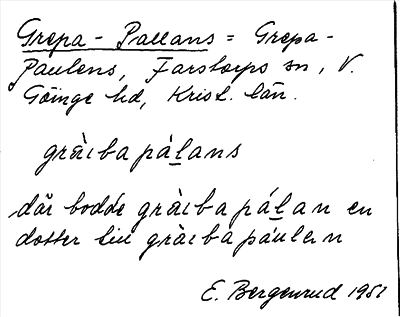 Grepa - Pallans = Grepa -
Paulens, Farstorps sn, V.
Göinge hd, Krist. län.
gràiba pálans
där bodde gràiba pálan en
dotter till gràiba páulen
E. Bergenrud 1951